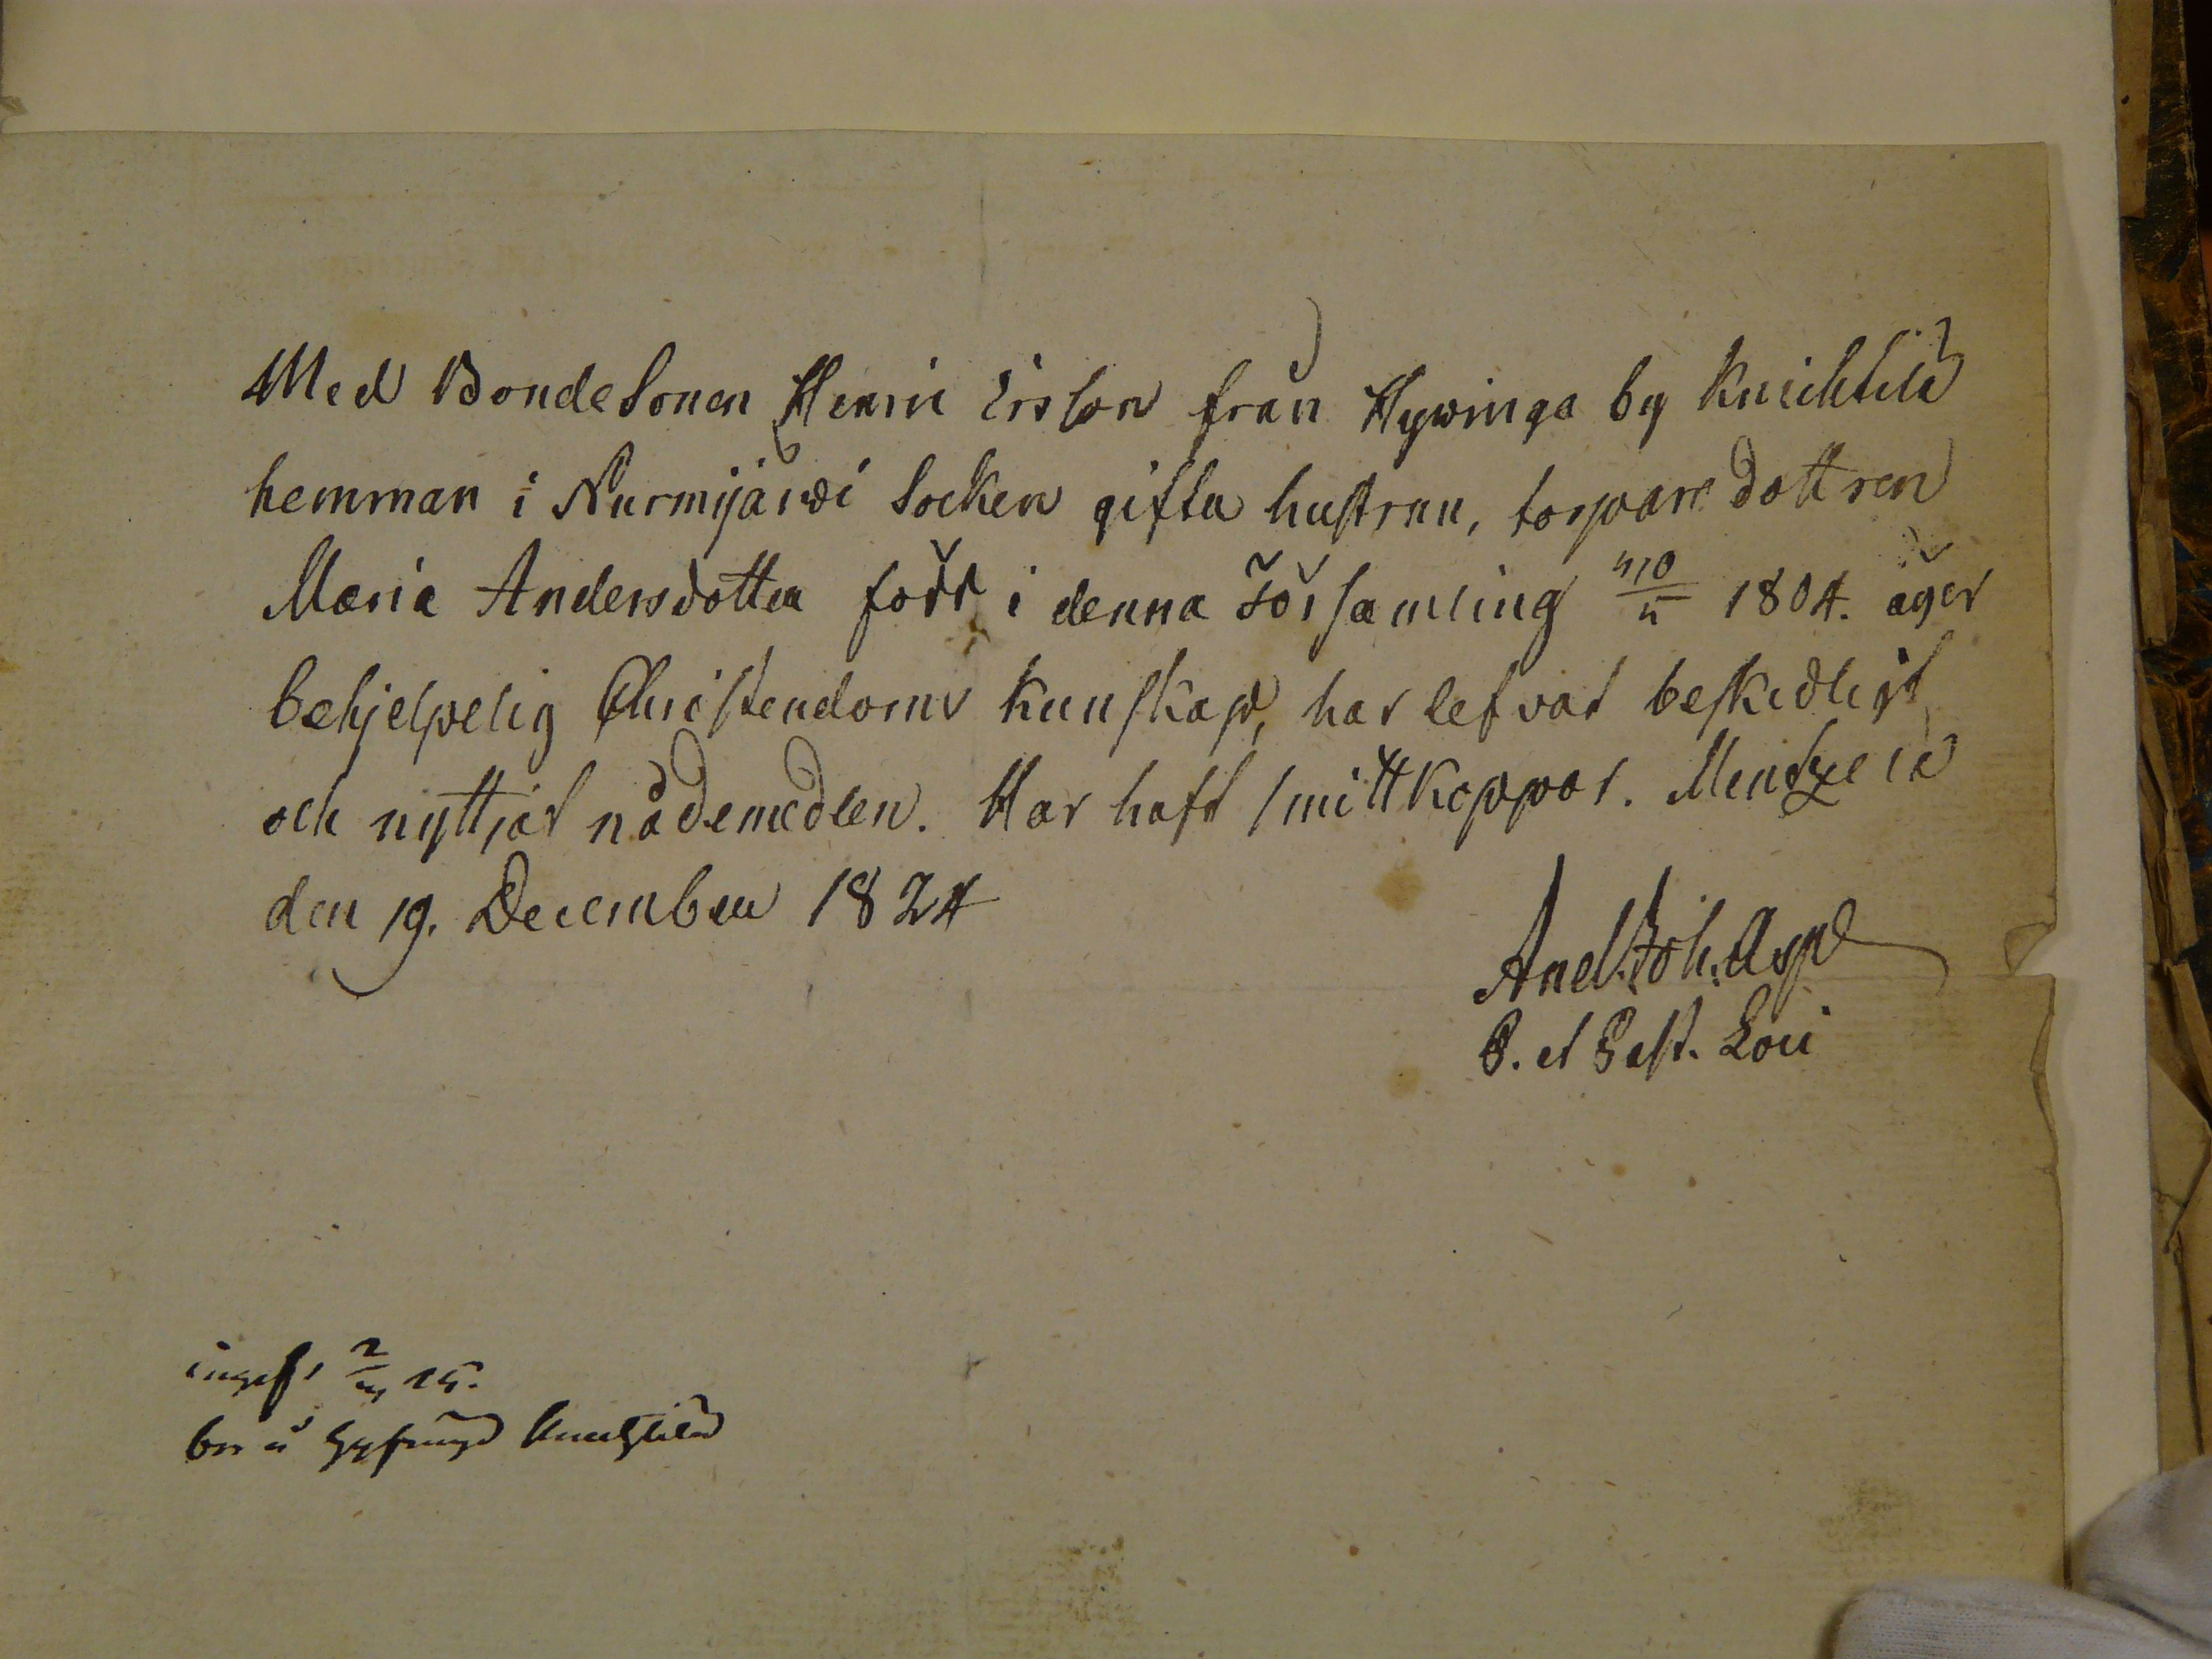 Med Bondesonen Henric Ersson från Hywinga by Knichtilä
hemman i Nurmijärwi Socken gifta hustrun, torparedottren
Maria Andersdotter född i denna Församling 1804. äger
behjelpelig Christendoms kunskap, har lefvat beskedligt
och nyttjat nådemedlen. Har haft smittkoppor. Mentzelä
den 19. December 1824
And. Joh. Asp
P. et Past. Loci